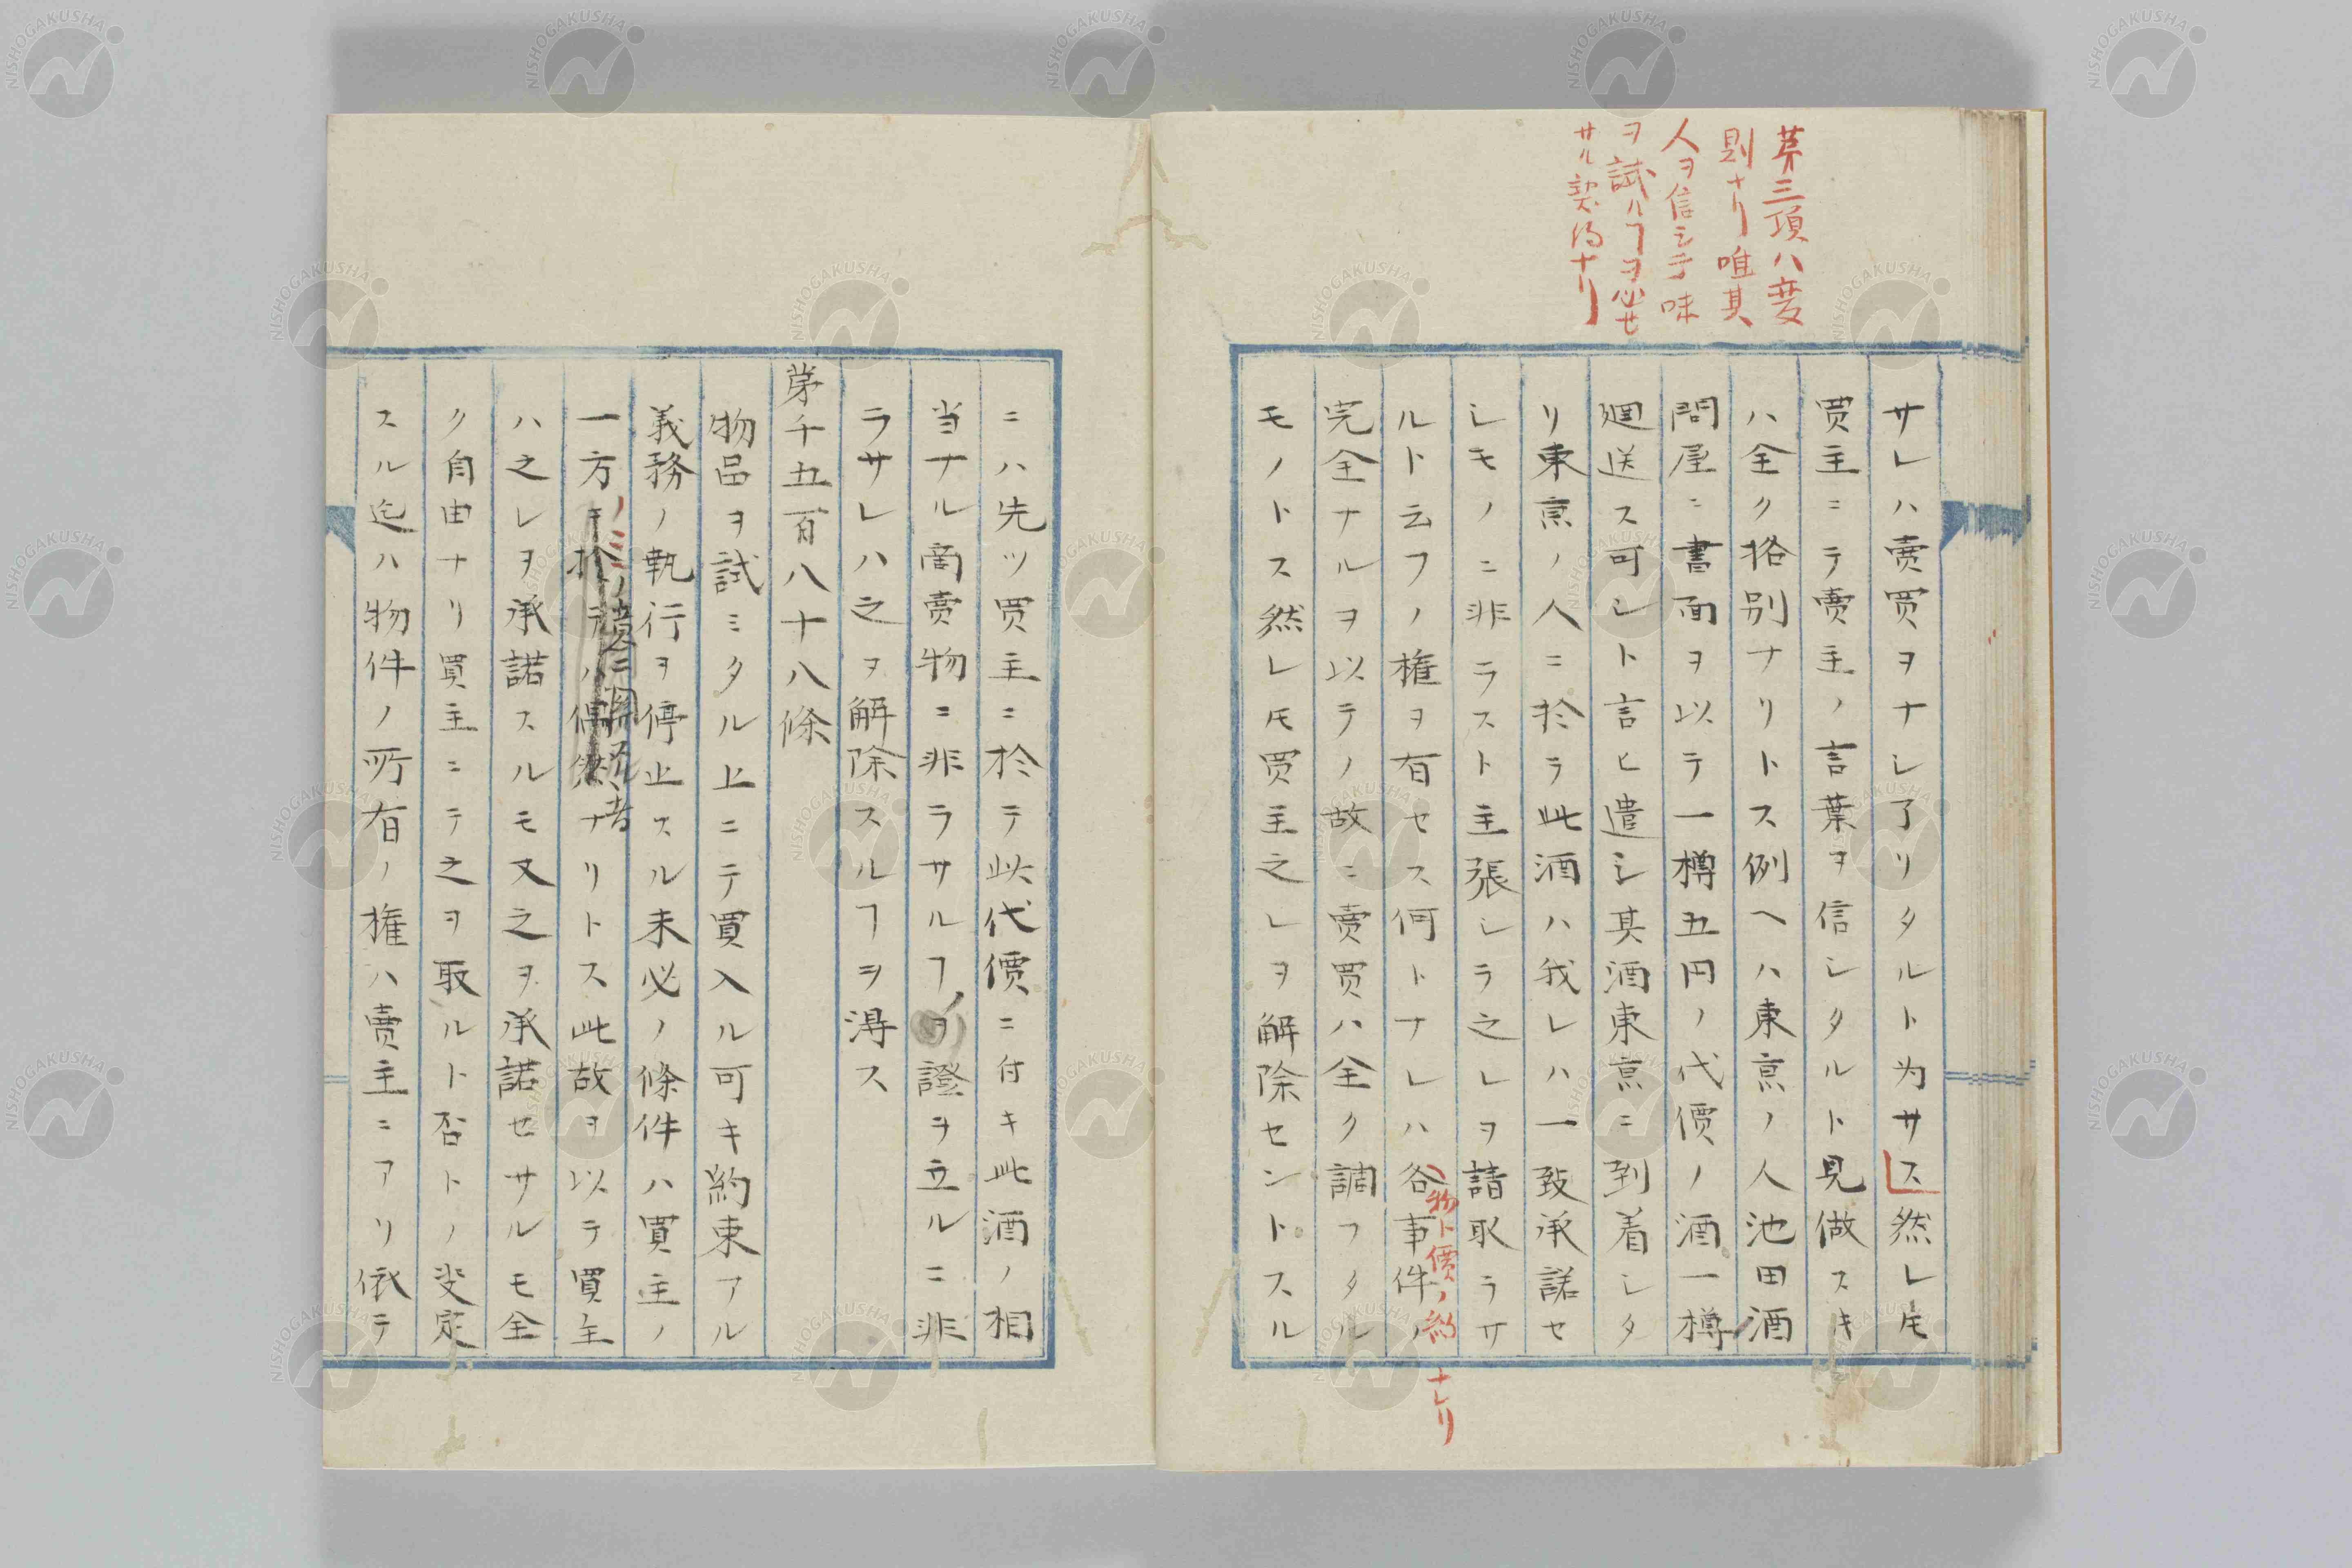 第三項ハ変
則ナリ唯其
人ヲ信シテ味
ヲ試ルヿヲ必セ
サル契約ナリ
サレハ賣買ヲナシ了リタルト为サス然レ𪜈
買主ニテ賣主ノ言葉ヲ信シタルト見做スキ
ハ全ク格別ナリトス例ヘハ東京ノ人池田酒
問屋ニ書面ヲ以テ一樽五円ノ代價ノ酒一樽
廻送ス可シト言ヒ遣シ其酒東京ニ到着シタ
リ東京ノ人ニ於テ此酒ハ我レハ一致承諾セ
シモノニ非ラスト主張シテ之レヲ請取ラサ
ルト云フノ権ヲ有セス何トナレハ各事件ノ
物ト價ノ約ナレリ
完全ナルヲ以テノ故ニ賣買ハ全ク調フタル
モノトス然レ𪜈買主之レヲ解除セントスル
ニハ先ツ買主ニ於テ此代價ニ付キ此酒ノ相
当ナル商賣物ニ非ラサルヿヲ證ヲ立ルニ非
ラサレハ之ヲ解除スルヿヲ淂ス
第千五百八十八條
物品ヲ試ミタル上ニテ買入ル可キ約束アル
義務ノ執行ヲ停止スル未必ノ條件ハ買主ノ
一方ノミノ随意ニ関スル者ナリトス此故ヲ以テ買主
ハ之レヲ承諾スルモ又之ヲ承諾セサルモ全
ク自由ナリ買主ニテ之ヲ取ルト否トノ決定
スル迄ハ物件ノ所有ノ権ハ賣主ニアリ依テ